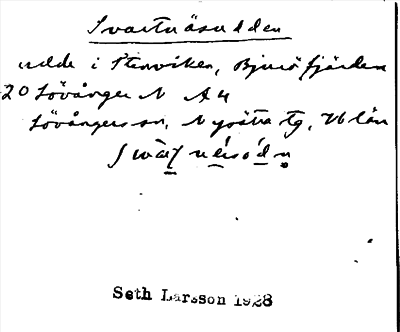 Svartnäsudden
udde i Stenviken, Bjurö fjärden
20 Lövånger N A4
Lövångers sn, N ysätra tg, Vb län
Seth Larsson 1928